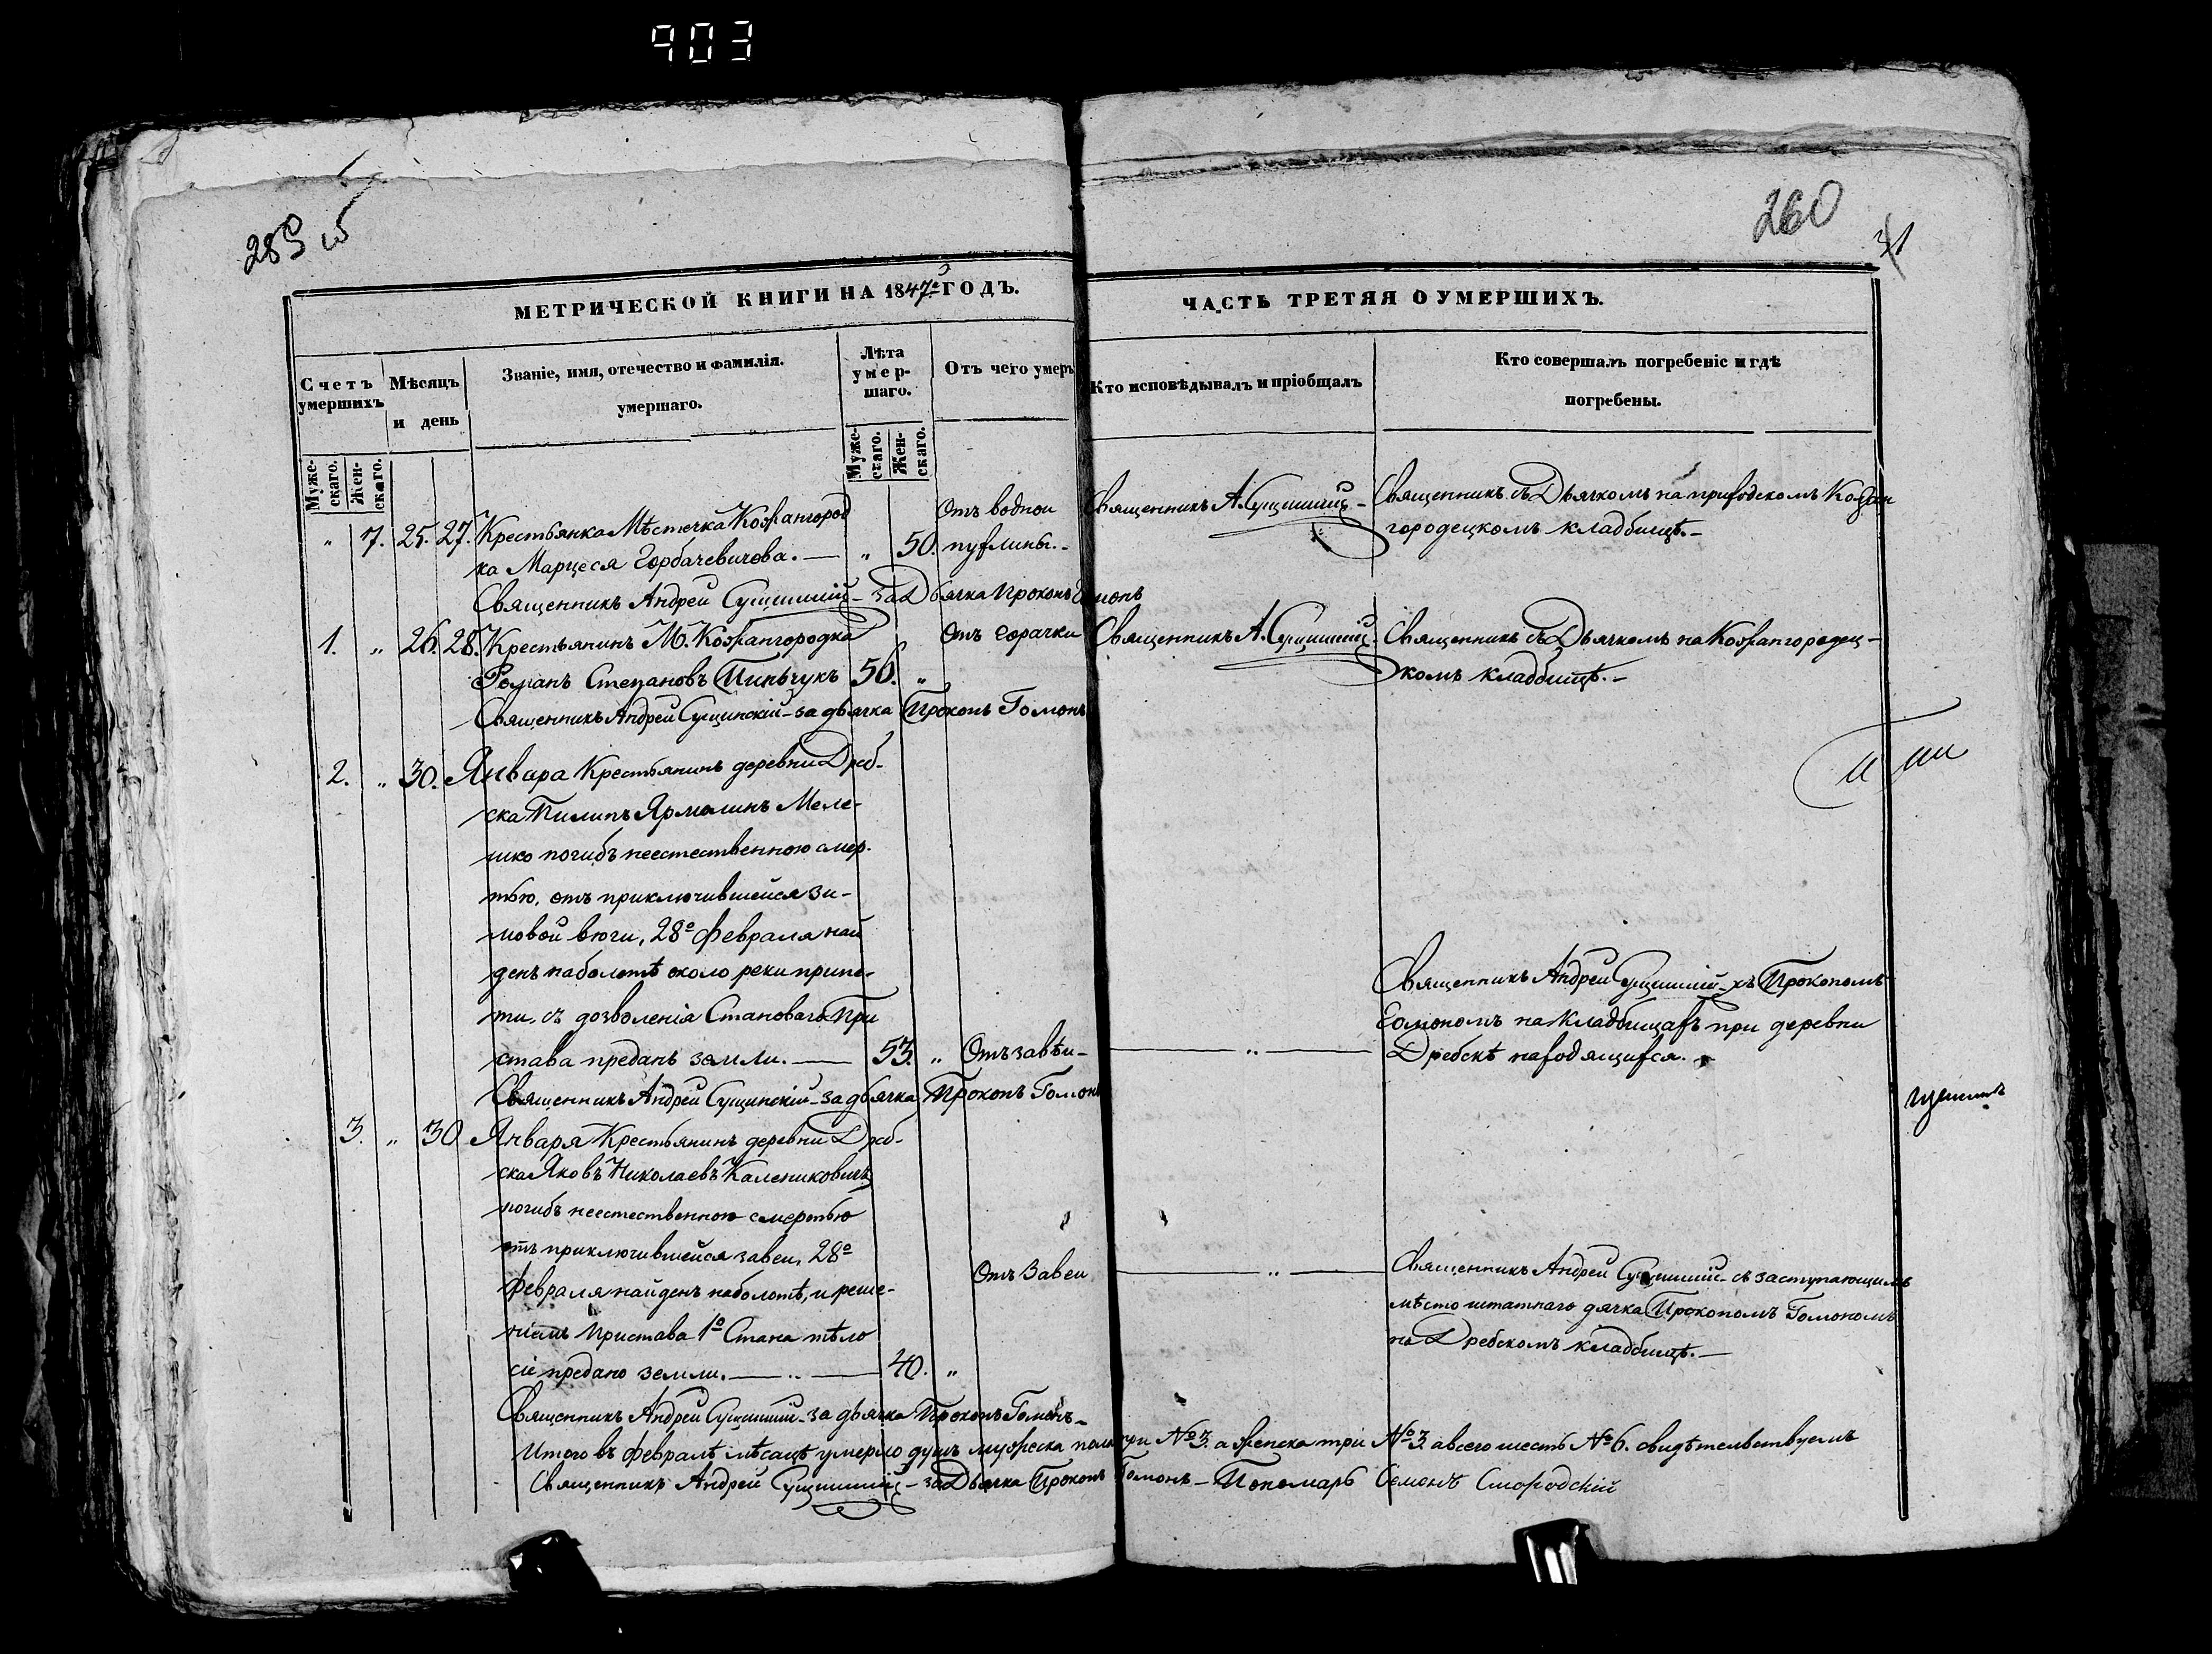 903
289 об
260
31
МЕТРИЧЕСКОЙ КНИГИ НА 1847й ГОДЪ.
ЧАСТЬ ТРЕТЯЯ О УМЕРШИХЪ.
Счетъ умершихъ
Мѣсяцъ и день
Званіе, имя, отечество и фамилія. умершаго.
Лѣта умершаго.
Отъ чего умеръ
Кто исповѣдывалъ и пріобщалъ
Кто совершалъ погребеніе и гдѣ погребены.
Мужескаго. Женскаго.
Мужескаго. Женскаго.
" 7. 25. 27. Крестьянка Мѣстечка Кожангород
ка Марцеся Горбачевичова. — " 50.
Отъ водной
пухлины.-
Священникъ А. Сущинскій -
Священникъ съ Дьячкомъ на приходскомъ Кожан
городецкомъ кладбищѣ.-
Священникъ Андрей Сущинскій - за Дьячка Прокопъ Гомонъ
1. " 26. 28. Крестьянинъ М. Кожангородка
Романъ Степановъ Пиньчукъ 56. "
Отъ горачки
Священникъ А. Сущинскій.
Священникъ съ Дьячкомъ на Кожангородец-
комъ кладбищѣ.-
Священникъ Андрей Сущинскій - за дьячка Прокопъ Гомонъ
2. " 30. Января Крестьянинъ деревни Дреб-
ска Пилипъ Ярмолинъ Меле-
шко погибъ неестественною смер-
тью, отъ приключившейся зи-
мовой вюги, 28о февраля най
денъ на болотѣ около реки припе-
ти, съ дозволенія Становаго При
става преданъ земли. — 53. "
Отъ завѣи-
— " —
Священникъ Андрей Сущинскій съ Прокопомъ
Гомономъ на Кладбищахъ при деревни
Дребскѣ находящихся.
Священникъ Андрей Сущинскій - за дьячка Прокопъ Гомонъ
3. " 30. Января Крестьянинъ деревни Дреб-
ска Яковъ Николаевъ Калениковичъ
погибъ неестественною смертью
отъ приключившейся завеи, 28о
февраля найденъ на болотѣ, и реше-
ніемъ Пристава 1о Стана тѣло
сіе предано земли. — " — 40. "
Отъ Завеи
— " —
Священникъ Андрей Сущинскій - съ заступающимъ
мѣсто штатнаго дячка Прокопомъ Гомономъ
на Дребскомъ кладбищѣ.—
Священникъ Андрей Сущинскій - за дьячка Прокопъ Гомонъ-
Итого въ февралѣ мѣсацѣ умерло душъ мужеска пола три №3. а женска три №3. а всего шесть №6. свидѣтелствуемъ
Священникъ Андрей Сущинскій - за Дьячка Прокопъ Гомонъ - Пономарь Семонъ Смородскій